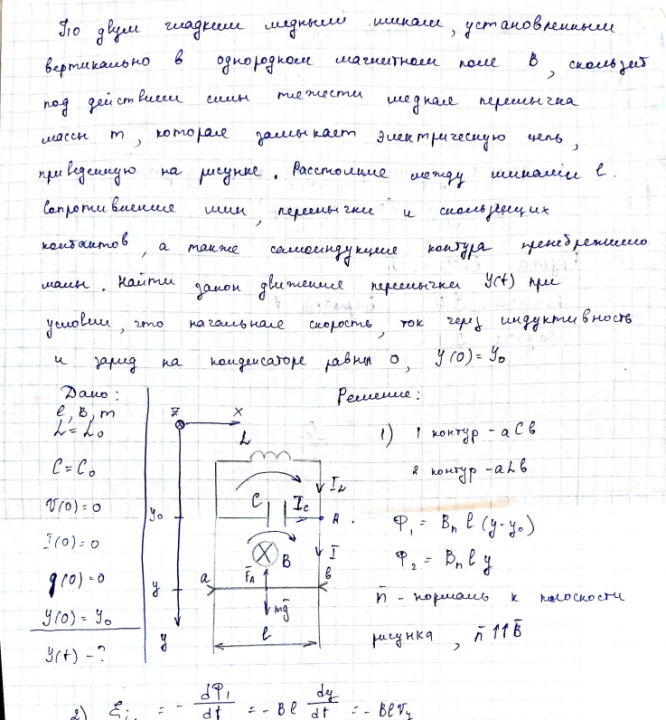 По двум гладким медным шинам, установленным
вертикально в однородном магнитном поле B, скользит
под действием силы тяжести медная перемычка
массы m, которая замыкает электрическую цепь,
приведенную на рисунке. Расстояние между шинами l.
Сопротивление шин, перемычки и скользящих
контактов, а также самоиндукция контура пренебрежимо
малы. Найти закон движения перемычки y(t) при
условии, что начальная скорость, ток через индуктивность
и заряд на конденсаторе равны 0, y(0) = y₀
Дано:
l, B, m
L = L₀
C = C₀
V(0) = 0
I(0) = 0
q(0) = 0
y(0) = y₀
y(t) - ?
Z X
L
I_L
C I_C
y₀
B I
a F_A в
y
mg
y l
Решение:
1) 1 контур - aCв
2 контур - aLв
Φ₁ = Bₙ l (y - y₀)
Φ₂ = Bₙ l y
n̄ - нормаль к плоскости
рисунка, n̄ ↑↑ B̄
2) = - dΦ₁/dt = - Bl dy/dt = - Bl